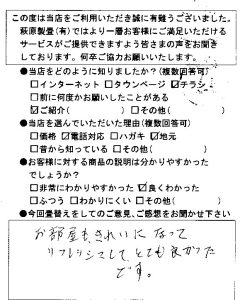 この度は当店をご利用いただき誠に有難うございました。
萩原製畳(有)ではより一層お客様にご満足いただける
サービスがご提供できますよう皆さまの声をお聞き
しております。何卒ご協力お願いいたします。
●当店をどのように知りましたか?(複数回答可)
□インターネット □タウンページ ☑チラシ
□前に何度かお願いしたことがある
☑ご紹介( ) □その他( )
●当店を選んでいただいた理由(複数回答可)
□価格 ☑電話対応 □ハガキ ☑地元
□昔から知っている □その他( )
●お客様に対する商品の説明は分かりやすかった
でしょうか?
□非常にわかりやすかった ☑良くわかった
□ふつう □わかりにくい □その他( )
●今回畳替えをしてのご意見、ご感想をお聞かせ下さい
お部屋もきれいになって
リフレッシュしてとても良かった
です。